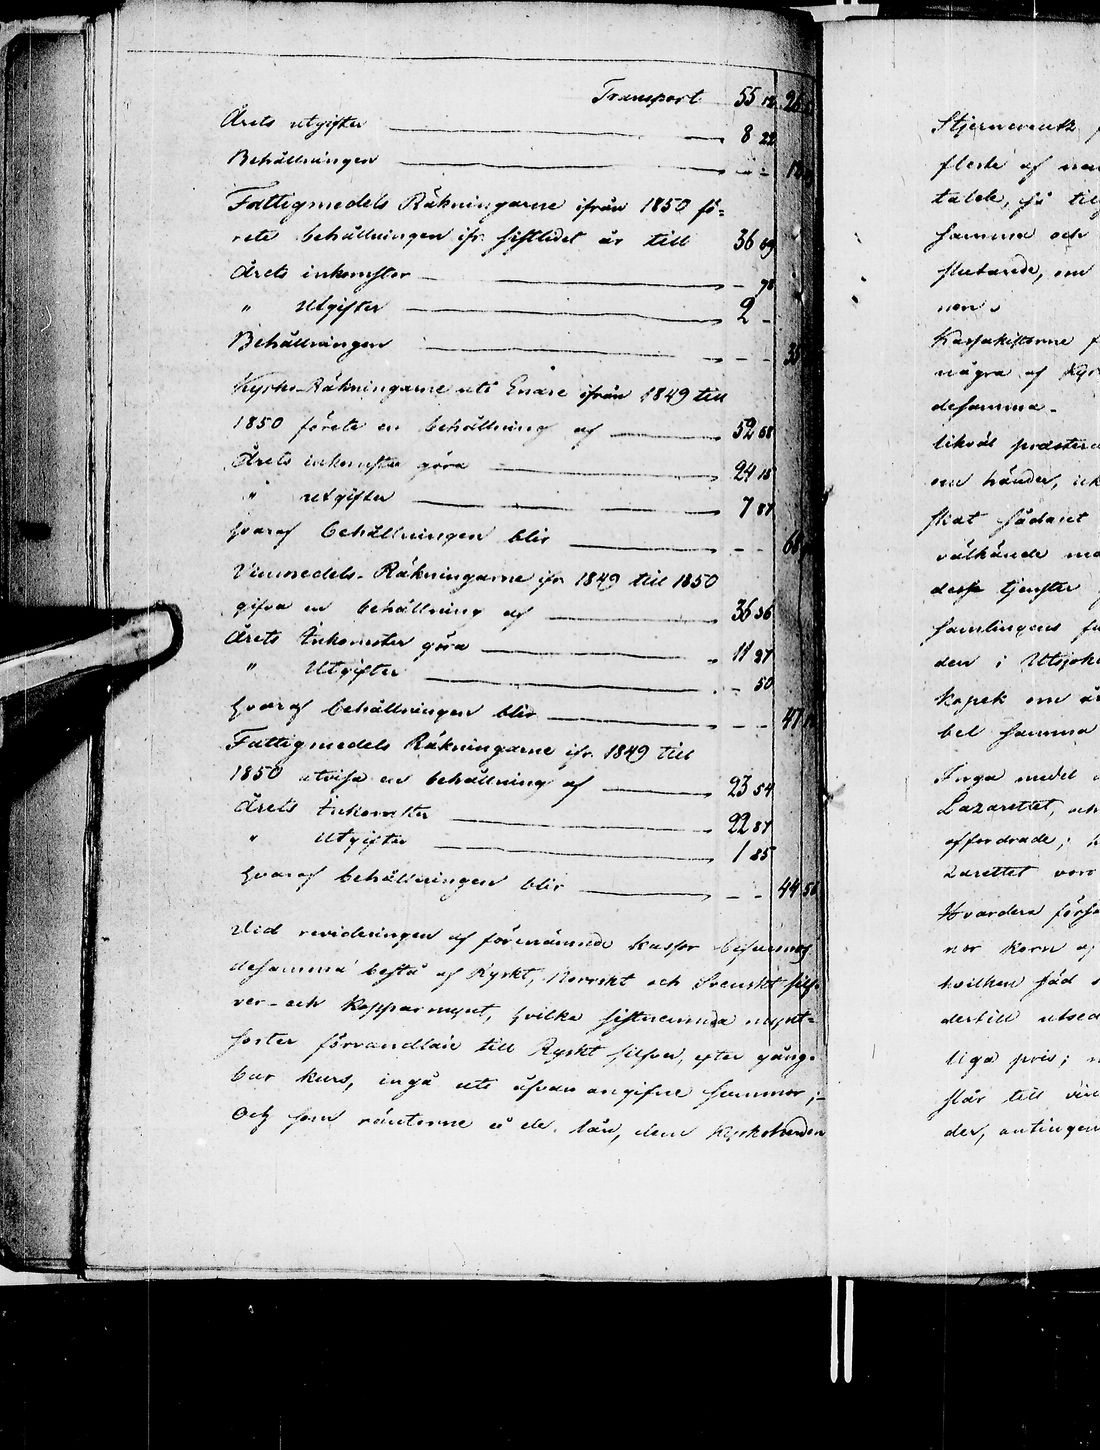 Transport 55 12
Årets utgifter 8 22
Behållningen - -
Fattigmedels Räkningarne ifrån 1850 fö=
rete behållningen ifr. sistledet år till 36 69
Årets inkomster - 78
" Utgifter 2 -
Behållningen - - 35
Kyrko-Räkningarne uti Enare ifrån 1849 till
1850 förete en behållning af 52 68
Årets inkomster göra 24 15
" utgifter 7 87
hvaraf behållningen blir - - 68
Vinmedels-Räkningarne ifr 1849 till 1850
gifva en behållning af 36 56
Årets Inkomster göra 11 37
" Utgifter - 50
hvaraf behållningen blir - - 47
Fattigmedels Räkningarne ifr. 1849 till
1850 utvisa en behållning af 23 54
Årets Inkomster 22 87
" Utgifter 1 85
hvaraf behållningen blir - - 44 56
Vid revideringen af förenämnde kassor befunnos
desamma bestå af Ryskt, Norrskt och Svenskt silf-
ver- och kopparmynt, hvilka sistnämnda mynt=
sorter förvandlade till Ryskt silfver, efter gång-
bar kurs, ingå uti ofvan angifne summor;-
Och som räntorne å de lån, dem Kyrkoherden
Stjernvank
fleste af
talde, så
samma och
slutande, om
non
Kassakistorne
några af
desamma.
likväl
om händer,
skat sådant
välkände
dessa tjenster
samlingens
den i Utsjoki
kopek om
bel samma
Inga medel
Lazarettet, och
affordrade;
zarettet voro
Hvardera
nor korn af
hvilken säd
dertill
liga pris;
står till
der, antingen